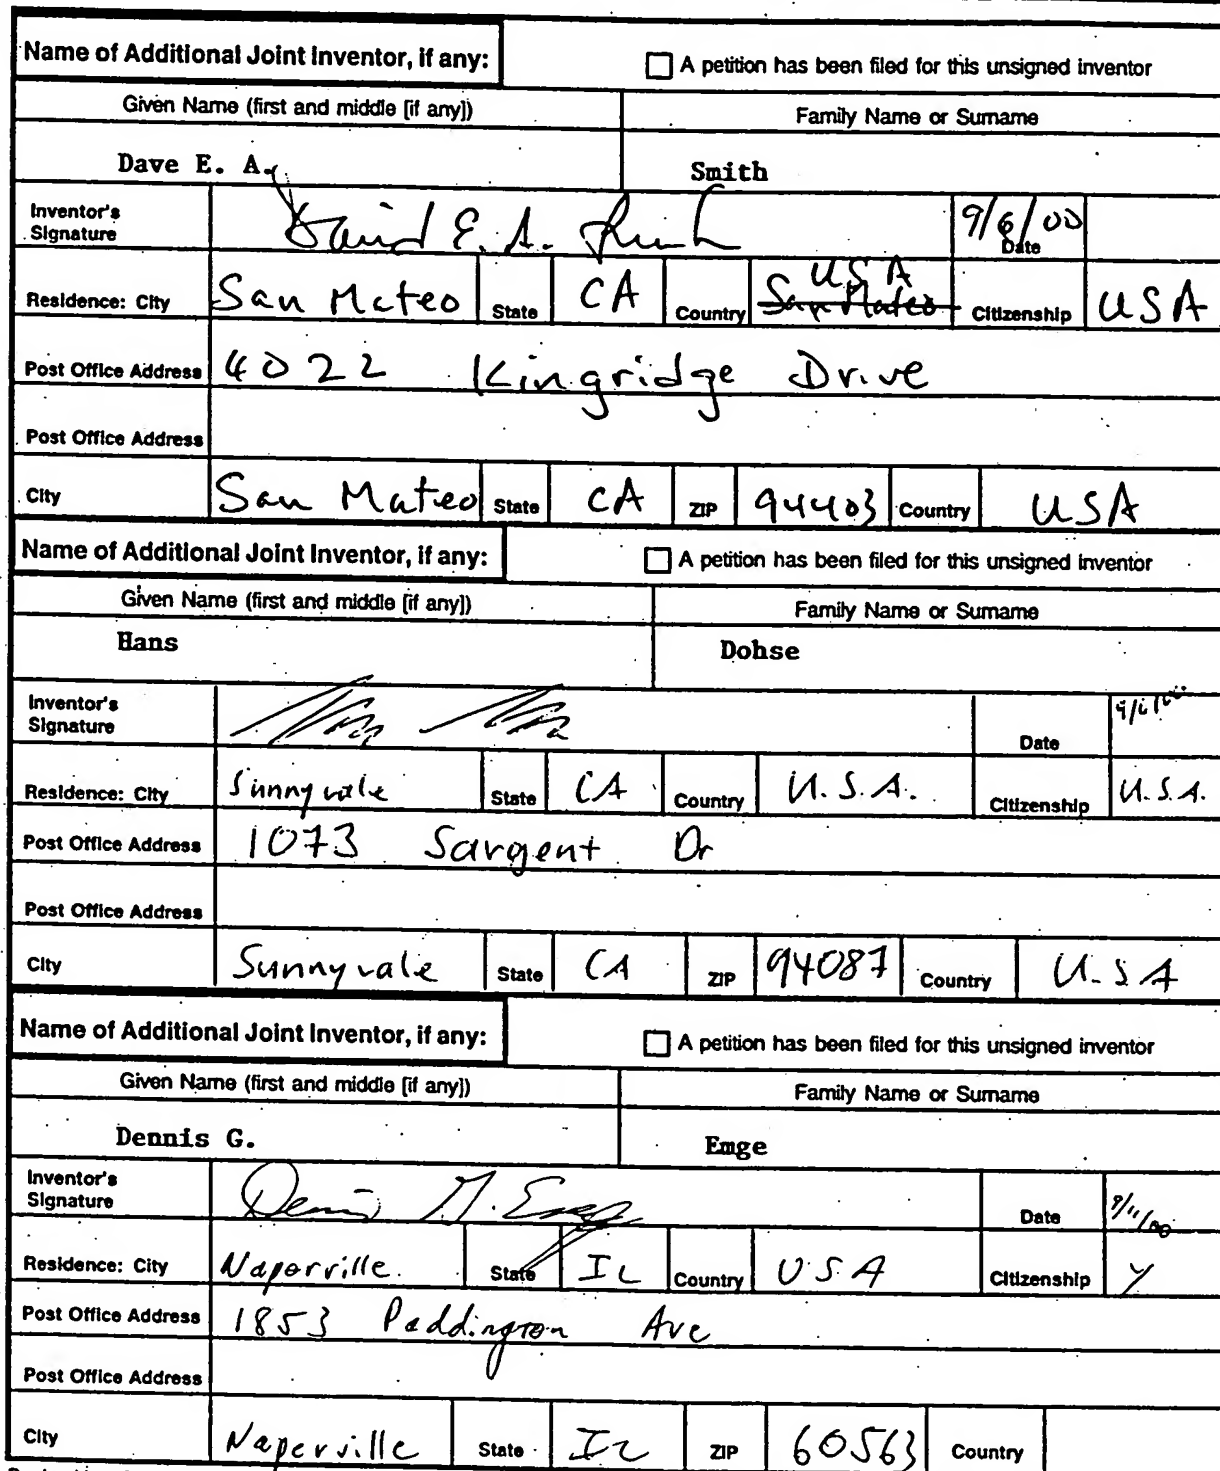 Name of Additional Joint Inventor, if any: A petition has been filed for this unsigned inventor
Given Name (first and middle [if any]) Family Name or Surname
Dave E. A. Smith
Inventor's Signature David E. A. Smith 9/6/00 Date
Residence: City San Mateo State CA Country USA San Mateo Citizenship USA
Post Office Address 4022 Kingridge Drive
Post Office Address
City San Mateo State CA ZIP 94403 Country USA
Name of Additional Joint Inventor, if any: A petition has been filed for this unsigned inventor
Given Name (first and middle [if any]) Family Name or Surname
Hans Dohse
Inventor's Signature Date
Residence: City Sunnyvale State CA Country U.S.A. Citizenship U.S.A.
Post Office Address 1073 Sargent Dr
Post Office Address
City Sunnyvale State CA ZIP 94087 Country U.S A
Name of Additional Joint Inventor, if any: A petition has been filed for this unsigned inventor
Given Name (first and middle [if any]) Family Name or Surname
Dennis G. Emge
Inventor's Signature Dennis G. Emge Date 9/11/00
Residence: City Naperville State IL Country USA Citizenship Y
Post Office Address 1853 Paddington Ave
Post Office Address
City Naperville State IL ZIP 60563 Country